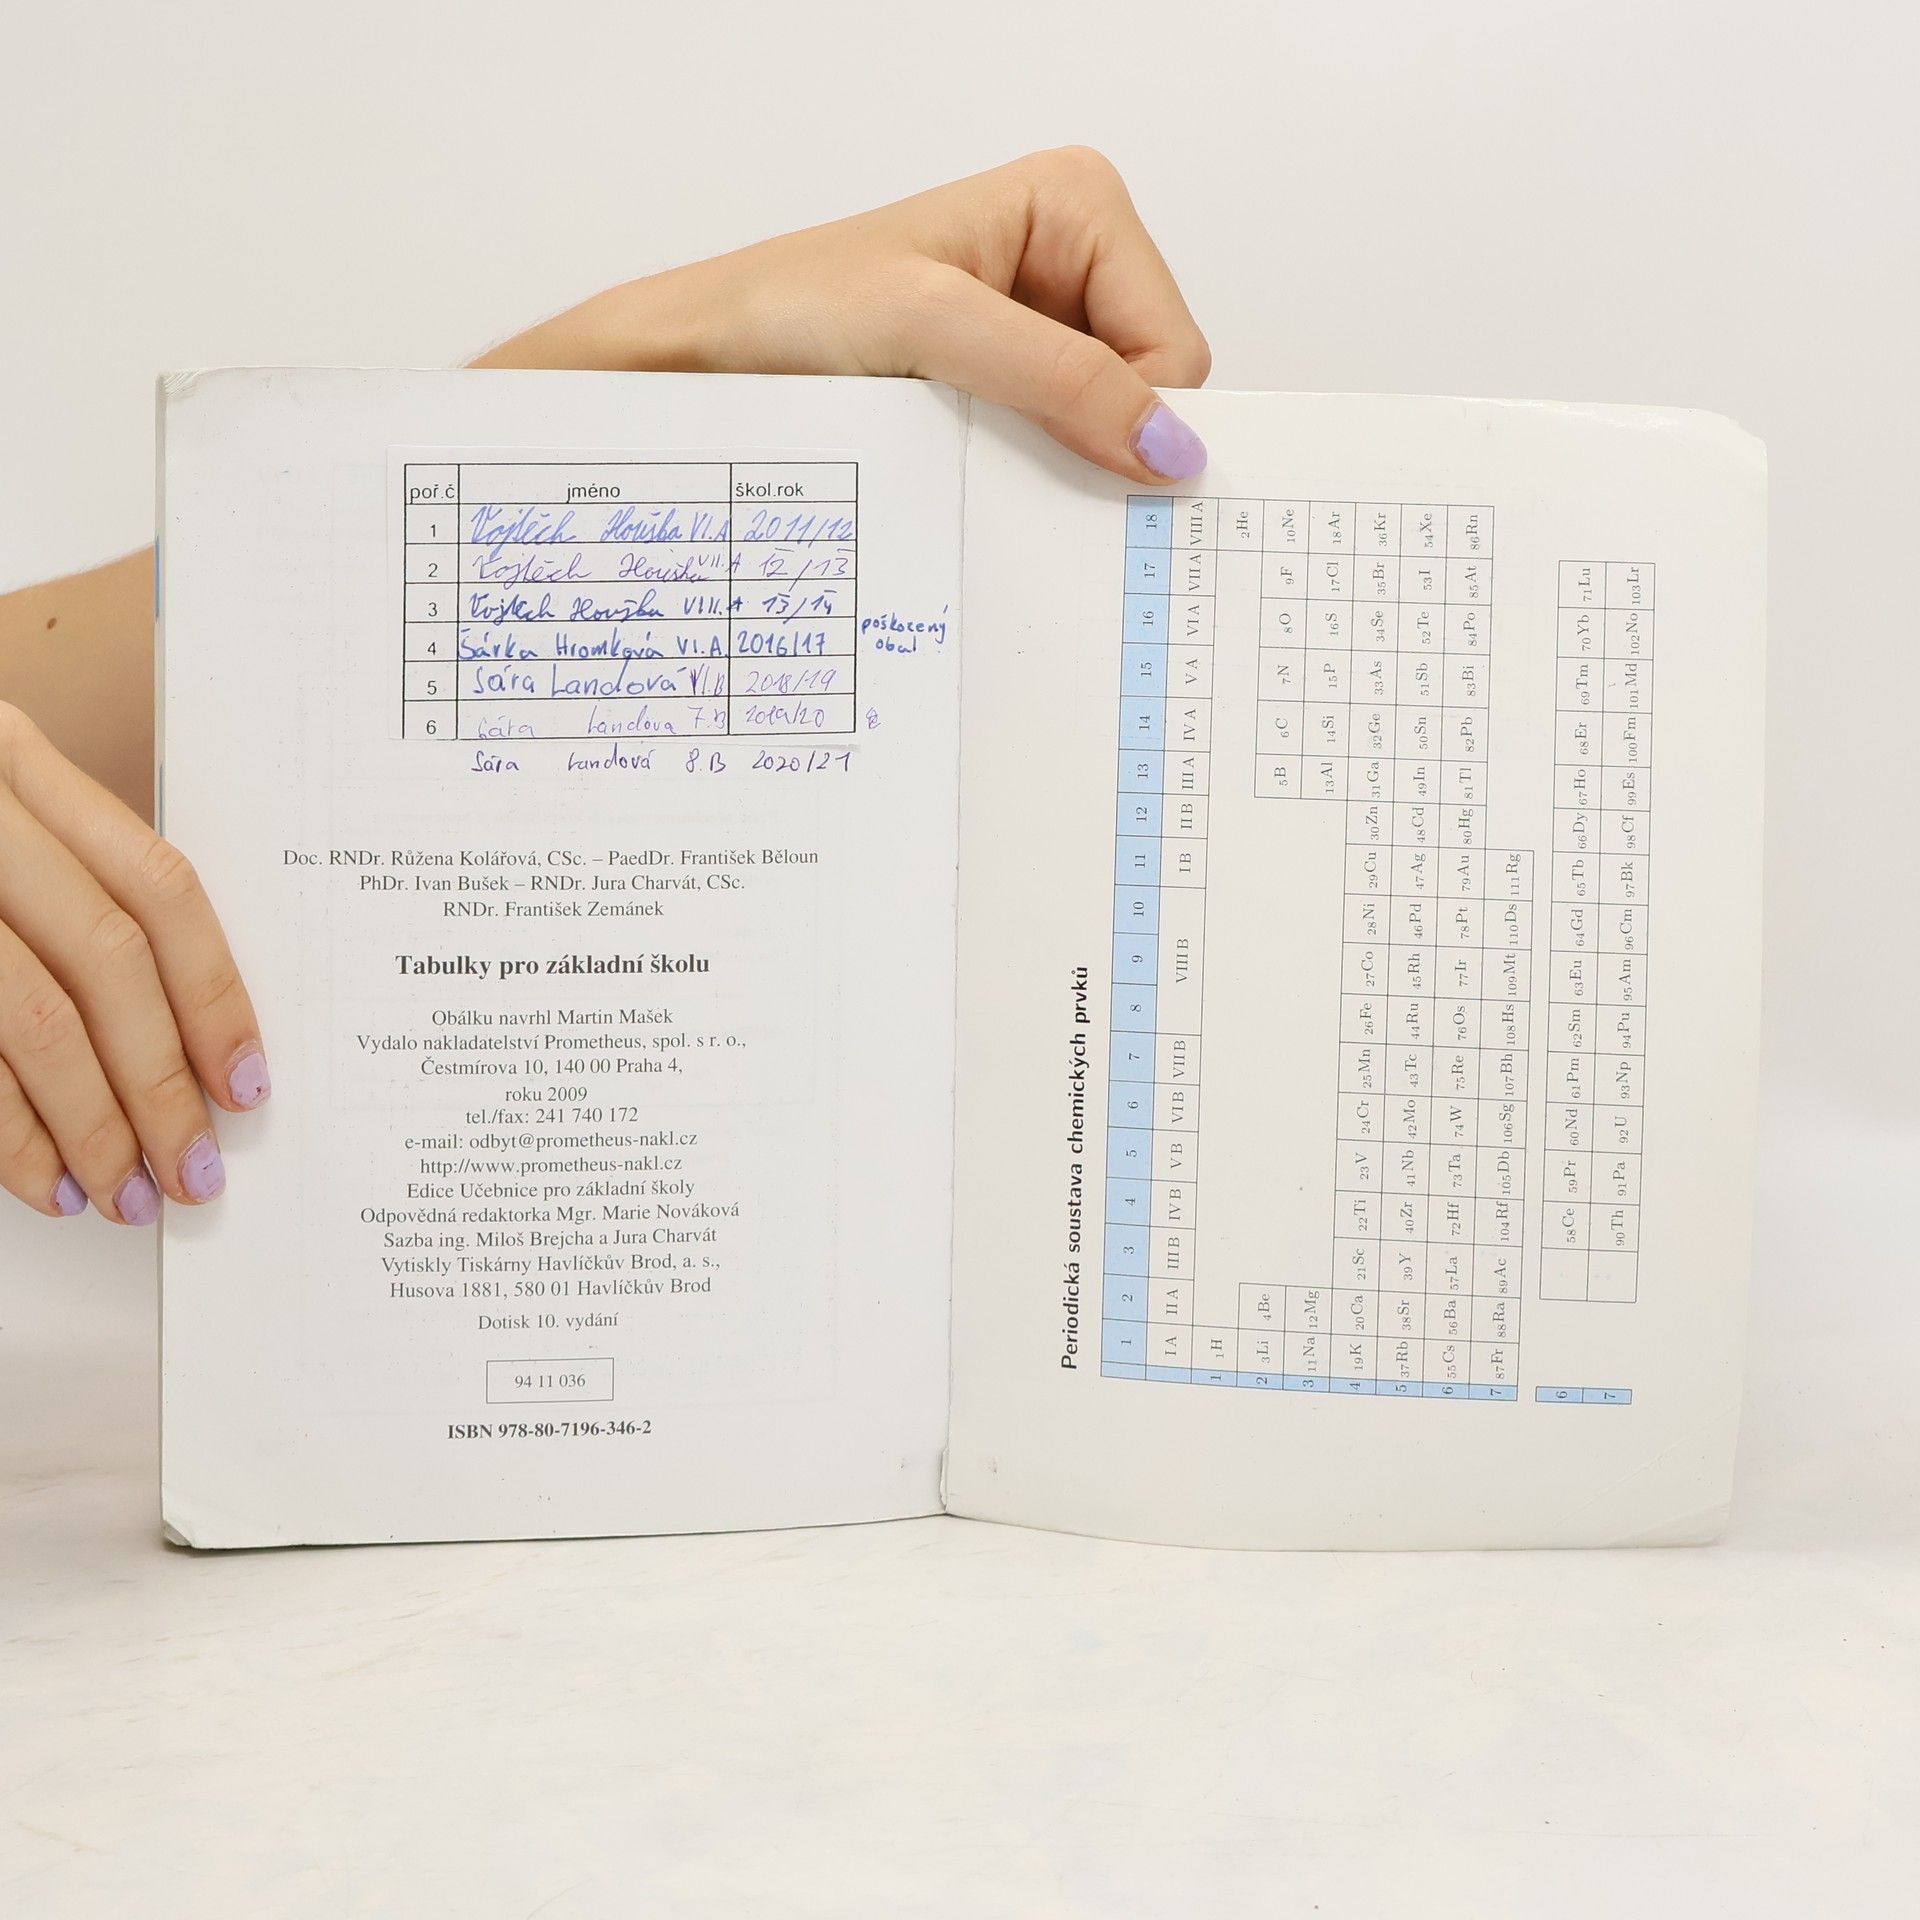 poř.č jméno škol.rok
1 Vojtěch Houška VI.A 2011/12
2 Vojtěch Houška VII.A 12/13
3 Vojtěch Houška VIII.A 13/14
4 Šárka Hromková VI.A. 2016/17 poškozený obal
5 Sára Landová VI.B 2018/19
6 Sára Landova 7.B 2019/20
Sára Landová 8.B 2020/21
Doc. RNDr. Růžena Kolářová, CSc. – PaedDr. František Běloun
PhDr. Ivan Bušek – RNDr. Jura Charvát, CSc.
RNDr. František Zemánek
Tabulky pro základní školu
Obálku navrhl Martin Mašek
Vydalo nakladatelství Prometheus, spol. s r. o.,
Čestmírova 10, 140 00 Praha 4,
roku 2009
tel./fax: 241 740 172
e-mail: odbyt@prometheus-nakl.cz
http://www.prometheus-nakl.cz
Edice Učebnice pro základní školy
Odpovědná redaktorka Mgr. Marie Nováková
Sazba ing. Miloš Brejcha a Jura Charvát
Vytiskly Tiskárny Havlíčkův Brod, a. s.,
Husova 1881, 580 01 Havlíčkův Brod
Dotisk 10. vydání
94 11 036
ISBN 978-80-7196-346-2
Periodická soustava chemických prvků
1 2 3 4 5 6 7 8 9 10 11 12 13 14 15 16 17 18
I A II A III B IV B V B VI B VII B VIII B I B II B III A IV A V A VI A VII A VIII A
1 1H 2He
2 3Li 4Be 5B 6C 7N 8O 9F 10Ne
3 11Na 12Mg 13Al 14Si 15P 16S 17Cl 18Ar
4 19K 20Ca 21Sc 22Ti 23V 24Cr 25Mn 26Fe 27Co 28Ni 29Cu 30Zn 31Ga 32Ge 33As 34Se 35Br 36Kr
5 37Rb 38Sr 39Y 40Zr 41Nb 42Mo 43Tc 44Ru 45Rh 46Pd 47Ag 48Cd 49In 50Sn 51Sb 52Te 53I 54Xe
6 55Cs 56Ba 57La 72Hf 73Ta 74W 75Re 76Os 77Ir 78Pt 79Au 80Hg 81Tl 82Pb 83Bi 84Po 85At 86Rn
7 87Fr 88Ra 89Ac 104Rf 105Db 106Sg 107Bh 108Hs 109Mt 110Ds 111Rg
6 58Ce 59Pr 60Nd 61Pm 62Sm 63Eu 64Gd 65Tb 66Dy 67Ho 68Er 69Tm 70Yb 71Lu
7 90Th 91Pa 92U 93Np 94Pu 95Am 96Cm 97Bk 98Cf 99Es 100Fm 101Md 102No 103Lr